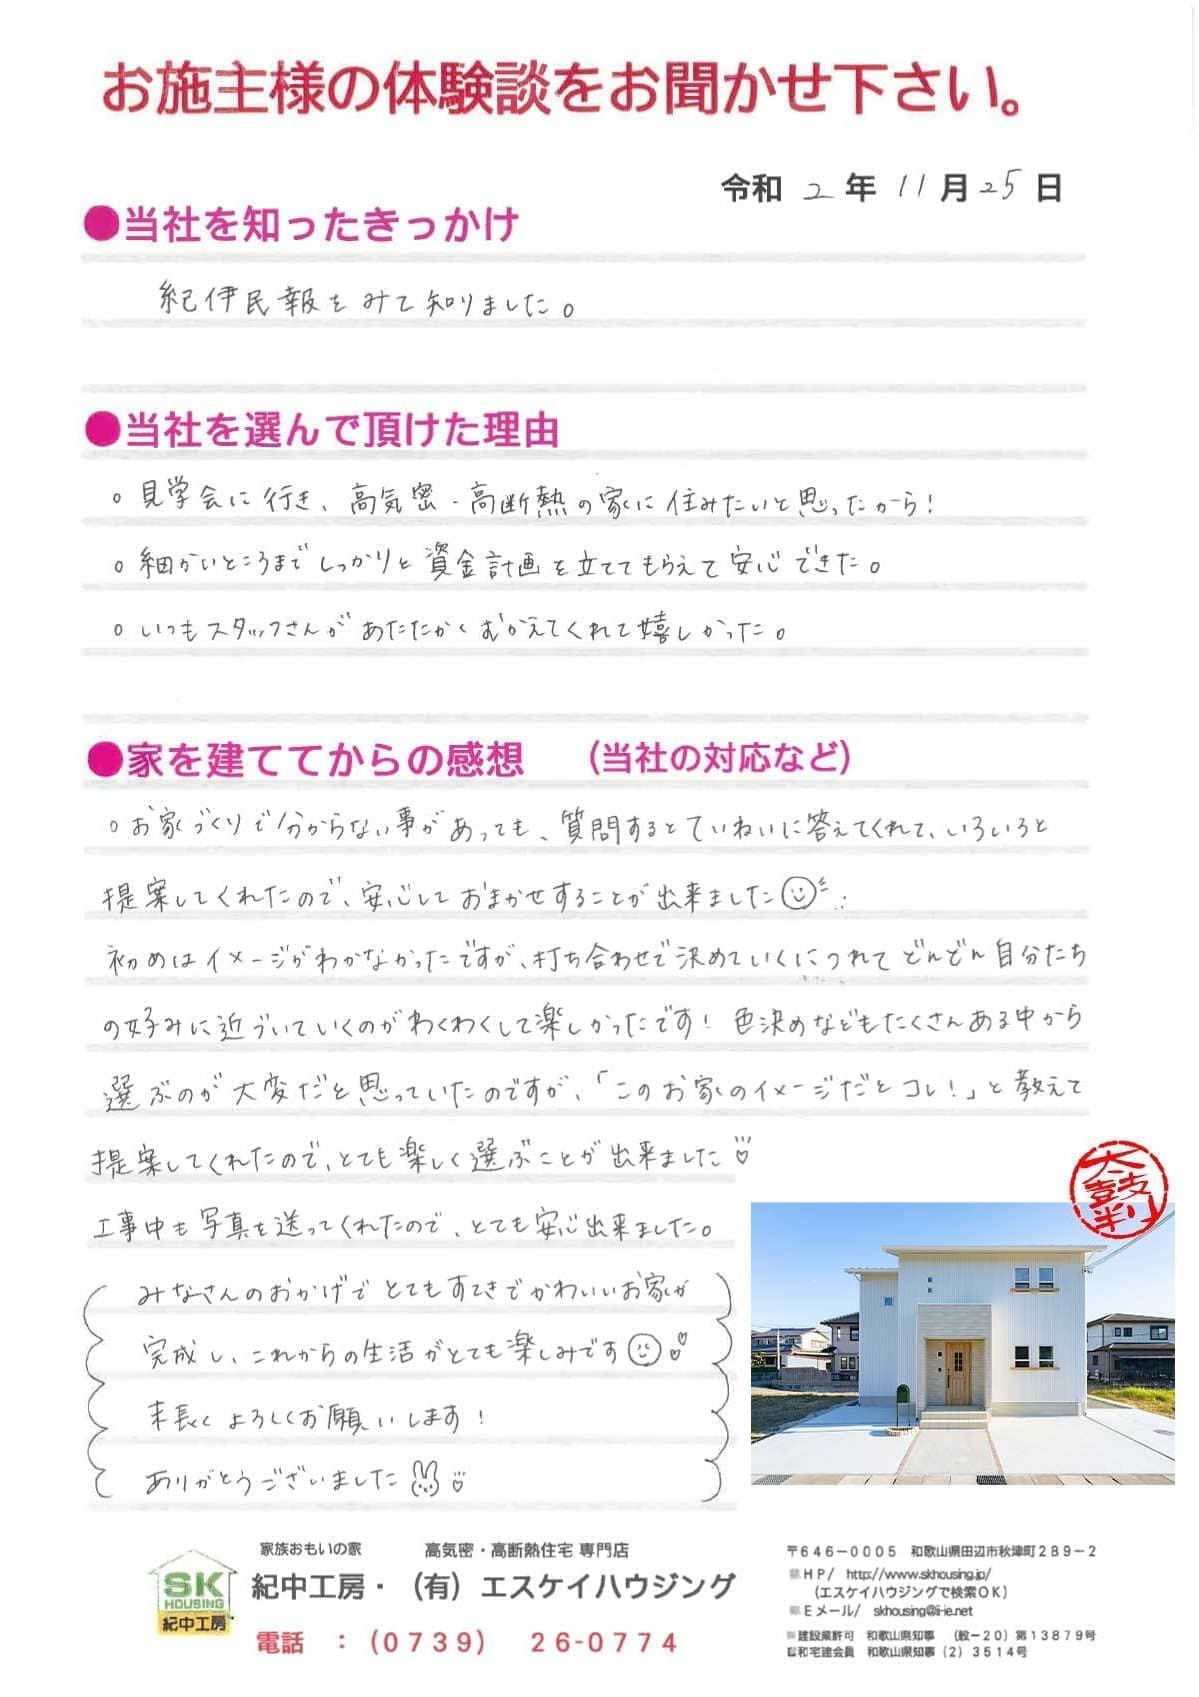 お施主様の体験談をお聞かせ下さい。
令和 2 年 11 月 25 日
●当社を知ったきっかけ
紀伊民報をみて知りました。
●当社を選んで頂けた理由
○見学会に行き、高気密・高断熱の家に住みたいと思ったから!
○細かいところまでしっかりと資金計画を立ててもらえて安心できた。
○いつもスタッフさんがあたたかくむかえてくれて嬉しかった。
●家を建ててからの感想 (当社の対応など)
○お家づくりで分からない事があっても、質問するとていねいに答えてくれて、いろいろと
提案してくれたので、安心しておまかせすることが出来ました
初めはイメージがわかなかったですが、打ち合わせで決めていくにつれてどんどん自分たち
の好みに近づいていくのがわくわくして楽しかったです! 色決めなどもたくさんある中から
選ぶのが大変だと思っていたのですが、「このお家のイメージだとコレ!」と教えて
提案してくれたので、とても楽しく選ぶことが出来ました♡
工事中も写真を送ってくれたので、とても安心出来ました。
みなさんのおかげでとてもすてきでかわいいお家が
完成し、これからの生活がとても楽しみです♡
末長くよろしくお願いします!
ありがとうございました♡
太鼓判
家族おもいの家 高気密・高断熱住宅 専門店
SK HOUSING 紀中工房
紀中工房・(有)エスケイハウジング
電話 :(0739) 26-0774
〒646-0005 和歌山県田辺市秋津町289-2
HP/ http://www.skhousing.jp/
(エスケイハウジングで検索OK)
Eメール/ skhousing@i-ie.net
建設業許可 和歌山県知事 (般-20)第13879号
和宅建会員 和歌山県知事(2)3514号